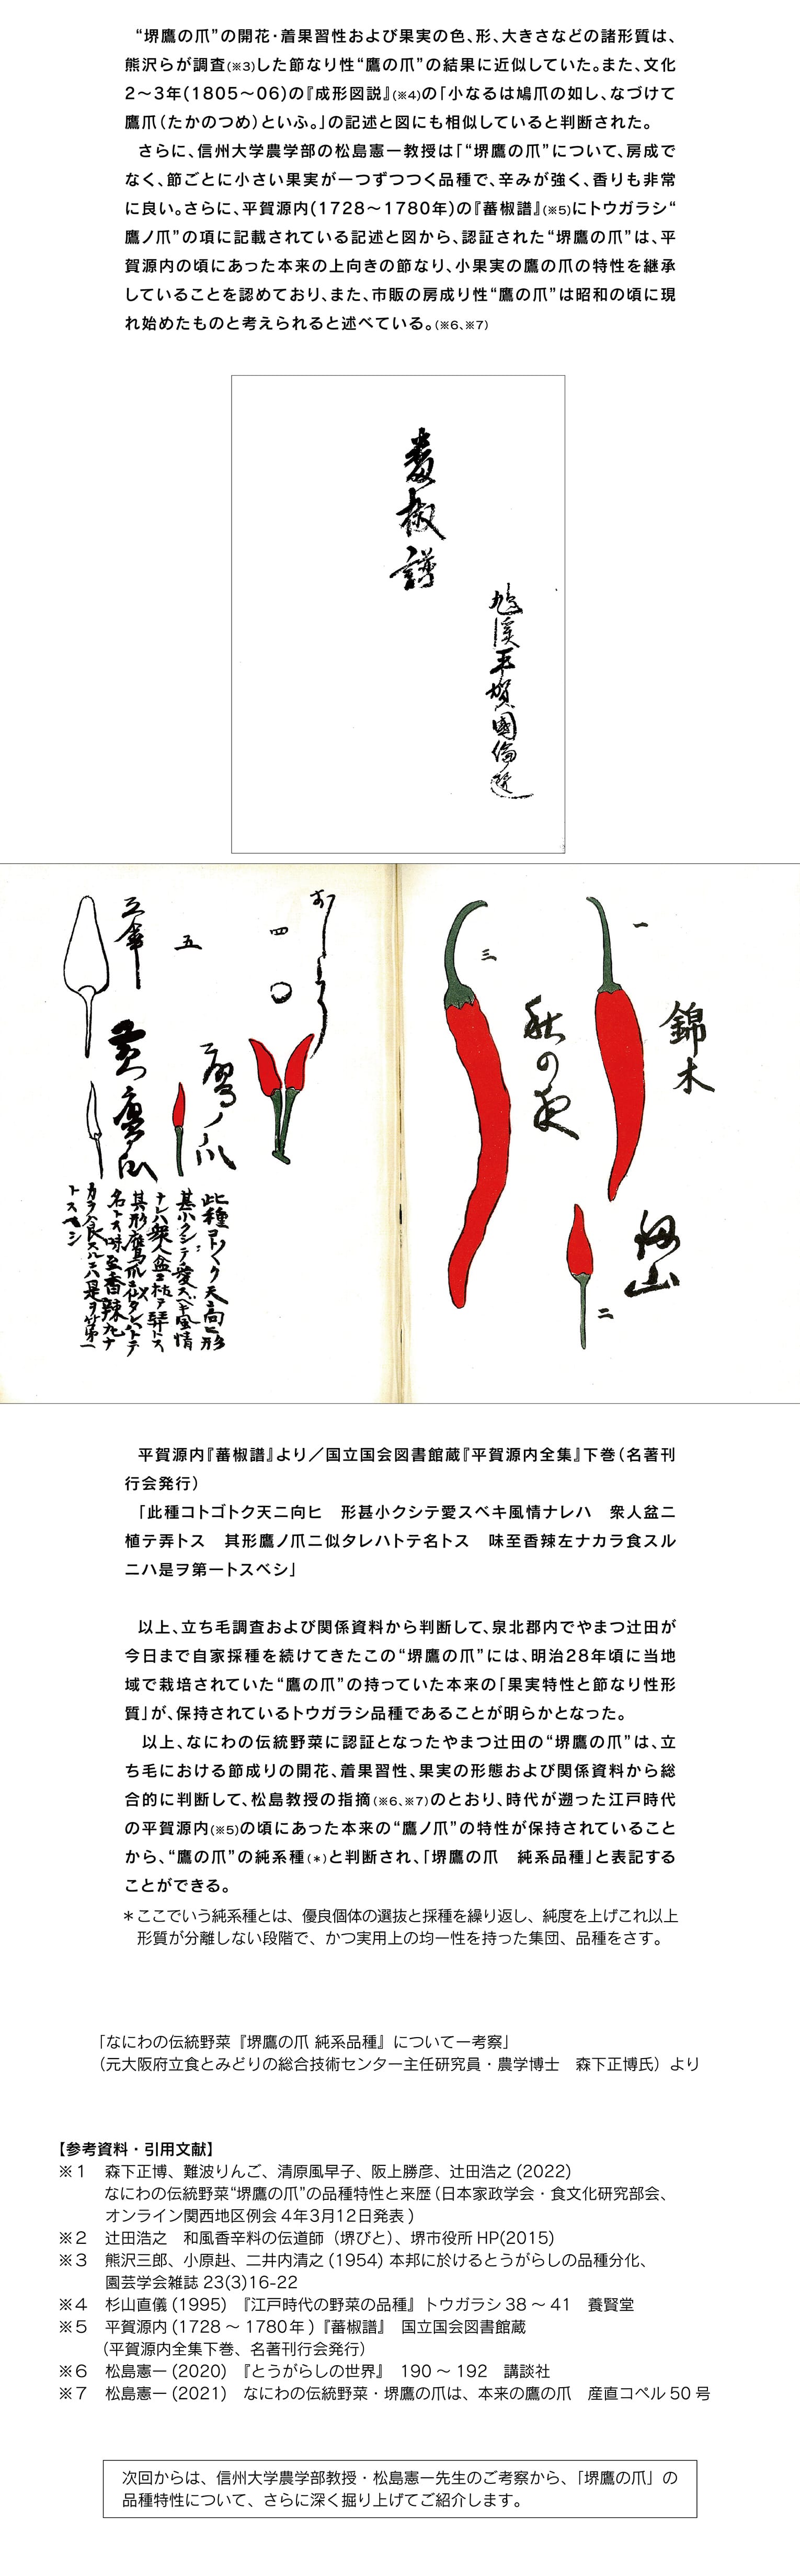 “堺鷹の爪”の開花・着果習性および果実の色、形、大きさなどの諸形質は、
熊沢らが調査(※3)した節なり性“鷹の爪”の結果に近似していた。また、文化
2〜3年(1805〜06)の『成形図説』(※4)の「小なるは鳩爪の如し、なづけて
鷹爪（たかのつめ）といふ。」の記述と図にも相似していると判断された。
さらに、信州大学農学部の松島憲一教授は「“堺鷹の爪”について、房成で
なく、節ごとに小さい果実が一つずつつく品種で、辛みが強く、香りも非常
に良い。さらに、平賀源内(1728〜1780年)の『蕃椒譜』(※5)にトウガラシ“
鷹ノ爪”の項に記載されている記述と図から、認証された“堺鷹の爪”は、平
賀源内の頃にあった本来の上向きの節なり、小果実の鷹の爪の特性を継承
していることを認めており、また、市販の房成り性“鷹の爪”は昭和の頃に現
れ始めたものと考えられると述べている。(※6、※7)
蕃椒譜
鳩溪平賀國倫選
一
錦木
二
三
秋の夜
四
五
鷹ノ爪
黄鷹爪
此種コトゴトク天ニ向ヒ形
甚小クシテ愛スベキ風情
ナレハ衆人盆ニ植テ弄トス
其形鷹ノ爪ニ似タレハトテ
名トス味至香辣左ナ
カラ食スルニハ是ヲ第一
トスベシ
平賀源内『蕃椒譜』より／国立国会図書館蔵『平賀源内全集』下巻（名著刊
行会発行）
「此種コトゴトク天ニ向ヒ　形甚小クシテ愛スベキ風情ナレハ　衆人盆ニ
植テ弄トス　其形鷹ノ爪ニ似タレハトテ名トス　味至香辣左ナカラ食スル
ニハ是ヲ第一トスベシ」
以上、立ち毛調査および関係資料から判断して、泉北郡内でやまつ辻田が
今日まで自家採種を続けてきたこの“堺鷹の爪”には、明治28年頃に当地
域で栽培されていた“鷹の爪”の持っていた本来の「果実特性と節なり性形
質」が、保持されているトウガラシ品種であることが明らかとなった。
以上、なにわの伝統野菜に認証となったやまつ辻田の“堺鷹の爪”は、立
ち毛における節成りの開花、着果習性、果実の形態および関係資料から総
合的に判断して、松島教授の指摘(※6、※7)のとおり、時代が遡った江戸時代
の平賀源内(※5)の頃にあった本来の“鷹ノ爪”の特性が保持されていること
から、“鷹の爪”の純系種(＊)と判断され、「堺鷹の爪　純系品種」と表記する
ことができる。
＊ここでいう純系種とは、優良個体の選抜と採種を繰り返し、純度を上げこれ以上
形質が分離しない段階で、かつ実用上の均一性を持った集団、品種をさす。
「なにわの伝統野菜『堺鷹の爪 純系品種』について一考察」
（元大阪府立食とみどりの総合技術センター主任研究員・農学博士　森下正博氏）より
【参考資料・引用文献】
※1　森下正博、難波りんご、清原風早子、阪上勝彦、辻田浩之 (2022)
なにわの伝統野菜“堺鷹の爪”の品種特性と来歴 (日本家政学会・食文化研究部会、
オンライン関西地区例会 4年3月12日発表 )
※2　辻田浩之　和風香辛料の伝道師（堺びと）、堺市役所 HP(2015)
※3　熊沢三郎、小原赳、二井内清之 (1954) 本邦に於けるとうがらしの品種分化、
園芸学会雑誌 23(3)16-22
※4　杉山直儀 (1995)　『江戸時代の野菜の品種』トウガラシ 38 〜 41　養賢堂
※5　平賀源内 (1728 〜 1780年 )『蕃椒譜』　国立国会図書館蔵
（平賀源内全集下巻、名著刊行会発行）
※6　松島憲一 (2020)　『とうがらしの世界』　190 〜 192　講談社
※7　松島憲一 (2021)　なにわの伝統野菜・堺鷹の爪は、本来の鷹の爪　産直コペル 50 号
次回からは、信州大学農学部教授・松島憲一先生のご考察から、「堺鷹の爪」の
品種特性について、さらに深く掘り上げてご紹介します。